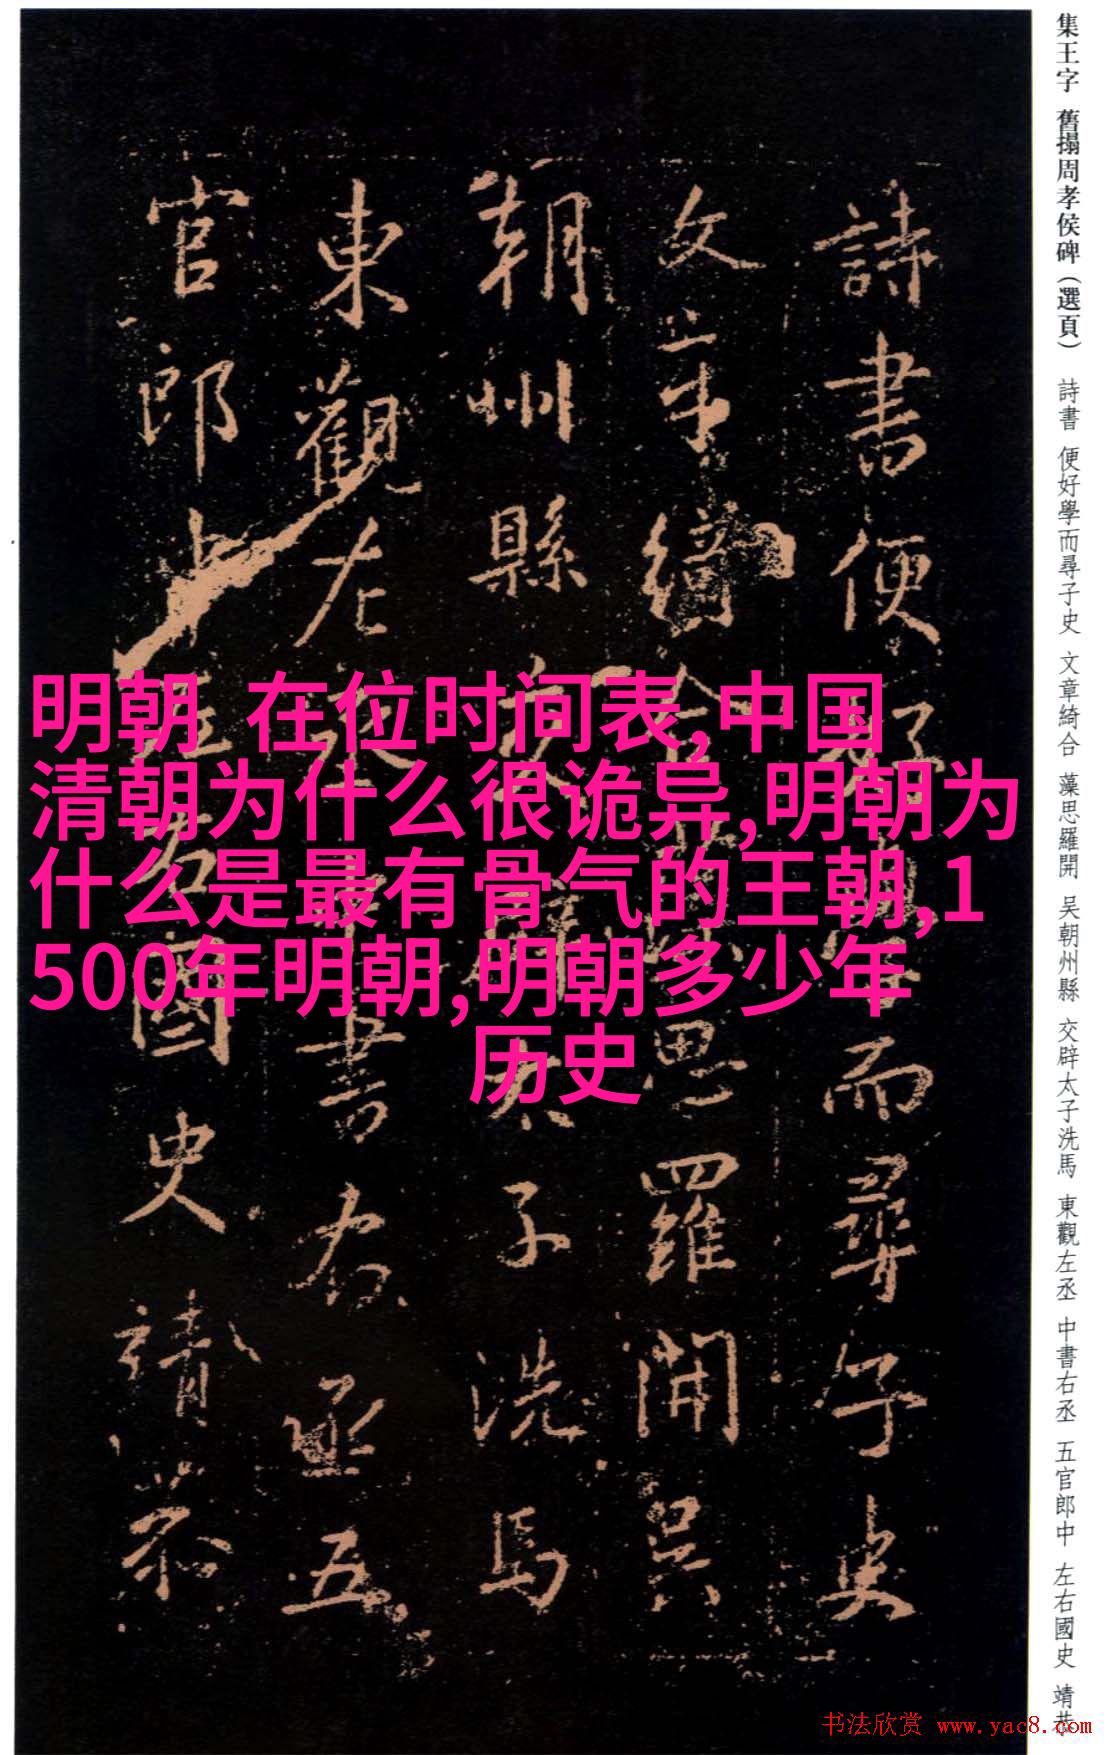 集王字 舊搨周孝侯碑（選頁） 詩書 便好學而尋子史 文章綺合 藻思羅開 吳朝州縣 交辟太子洗馬 東觀左丞 中書右丞 五官郎中 左右國史 靖恭
詩書便好學而尋子史
文章綺合藻思羅開吳
朝州縣交辟太子洗馬
東觀左丞中書右丞五
官郎中左右國史靖恭
明朝 在位时间表,中国
清朝为什么很诡异,明朝为
什么是最有骨气的王朝,1
500年明朝,明朝多少年
历史
书法欣赏 www.yac8.com